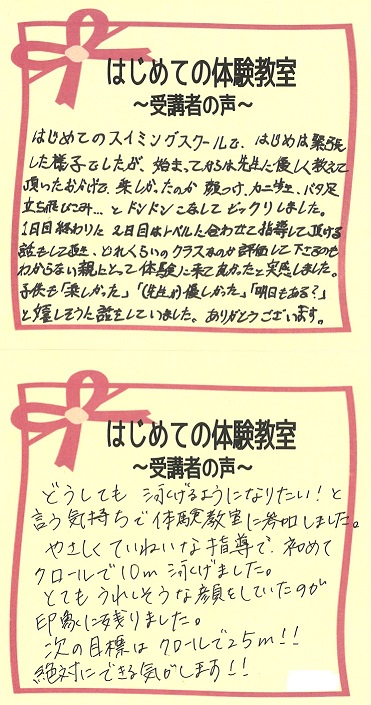 はじめての体験教室
～受講者の声～
はじめてのスイミングスクールで、はじめは緊張
した様子でしたが、始まってからは先生に優しく教えて
頂いたおかげで、楽しかったのか 顔つけ、カニ歩き、バタ足
立ち飛びこみ…と ドンドンこなしてビックリしました。
1日目終わりた 2日目はレベルに合わせて指導して頂ける
話もして頂き、どれくらいのクラスなのか評価して下さるのも
わからない親にとって体験に来て良かったと実感しました。
子供も「楽しかった」「(先生が)優しかった」「明日もある?」
と嬉しそうに話をしていました。ありがとうございます。
はじめての体験教室
～受講者の声～
どうしても 泳げるようになりたい!と
言う気持ちで体験教室に参加しました。
やさしくていねいな指導で、初めて
クロールで10m泳げました。
とてもうれしそうな顔をしていたのが
印象に残りました。
次の目標は クロールで25m!!
絶対にできる気がします!!